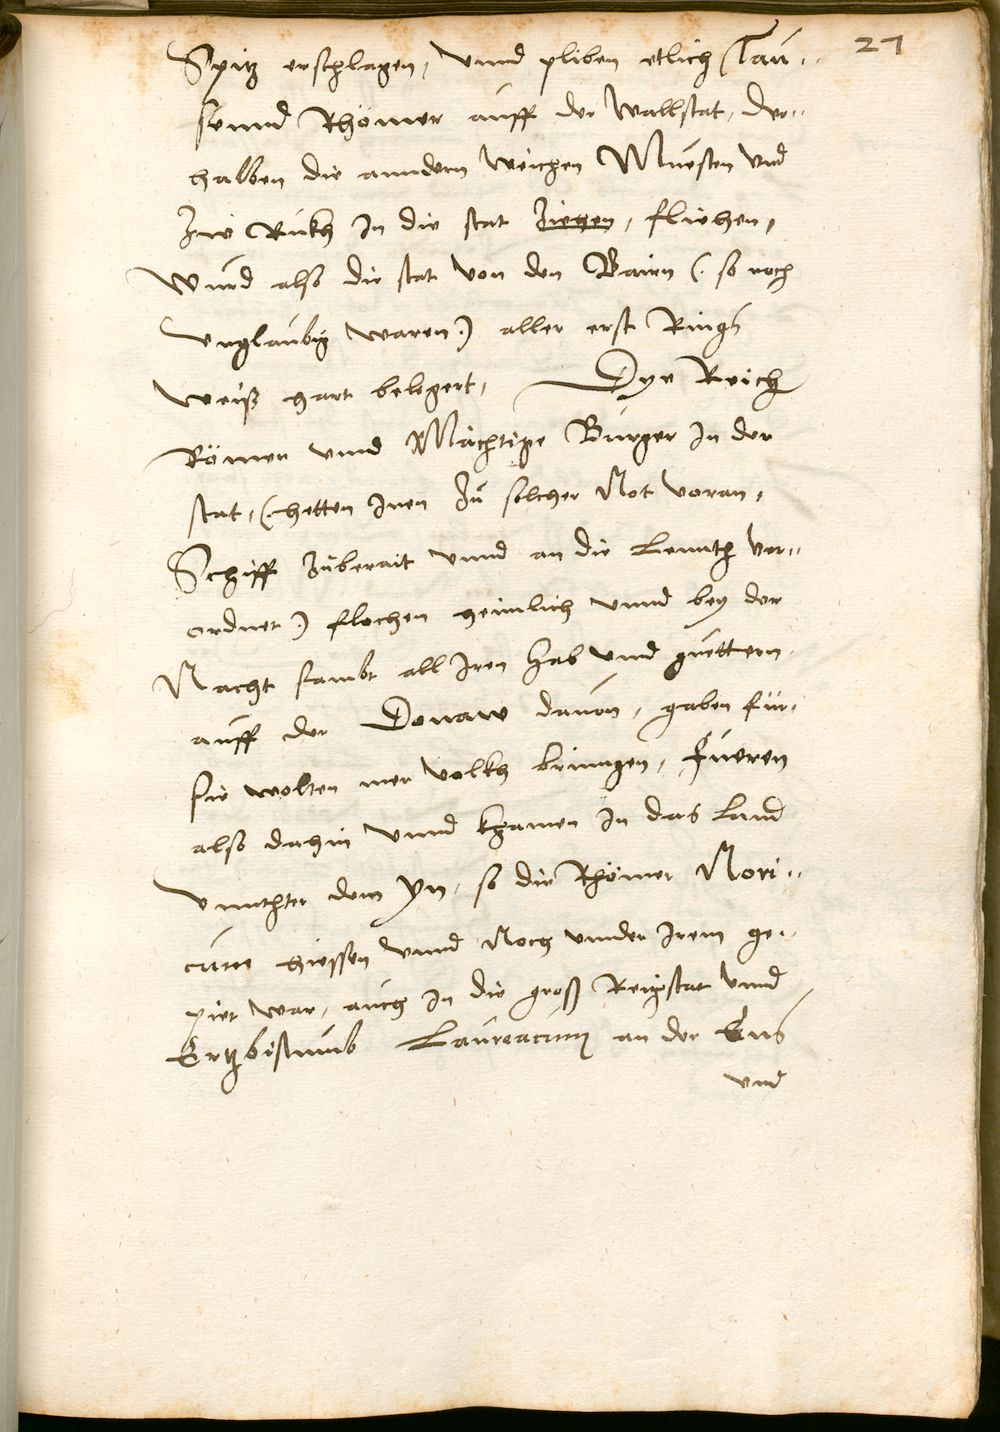 27
Spitz erschlagen, vnnd pliben etlich Tau=
sennd Rhömer auff der Wallstat, der=
halben die anndern weichen Muesten vnd
Zw Rukh In die stat Ziehen, fliehen,
Wurd also die stat von den Bairn (: so noch
vnglaubig waren :) aller erst Rings
weiß hart belegert, Dye Reich
Römer vnnd Mächtige Burger In der
stat, (: hetten Inen Zu solcher Not voran,
Schiff Zuberait vnnd an die Lennth ver=
ordnet :) flochen heimlich vnnd bey der
Nacht sambt all Iren Hab vnnd guettern
auff der Donaw dauon, gaben für,
sie wolten mer volkh bringen, Fueren
also dahin vnnd khamen In das Land
vnnther dem Yn, so die Rhömer Nori=
cum hiessen vnnd Noch vnnder Irem ge=
piet war, auch In die groß Reichstat vnnd
Ertzbistumb Laureacum an der Ens
vnd